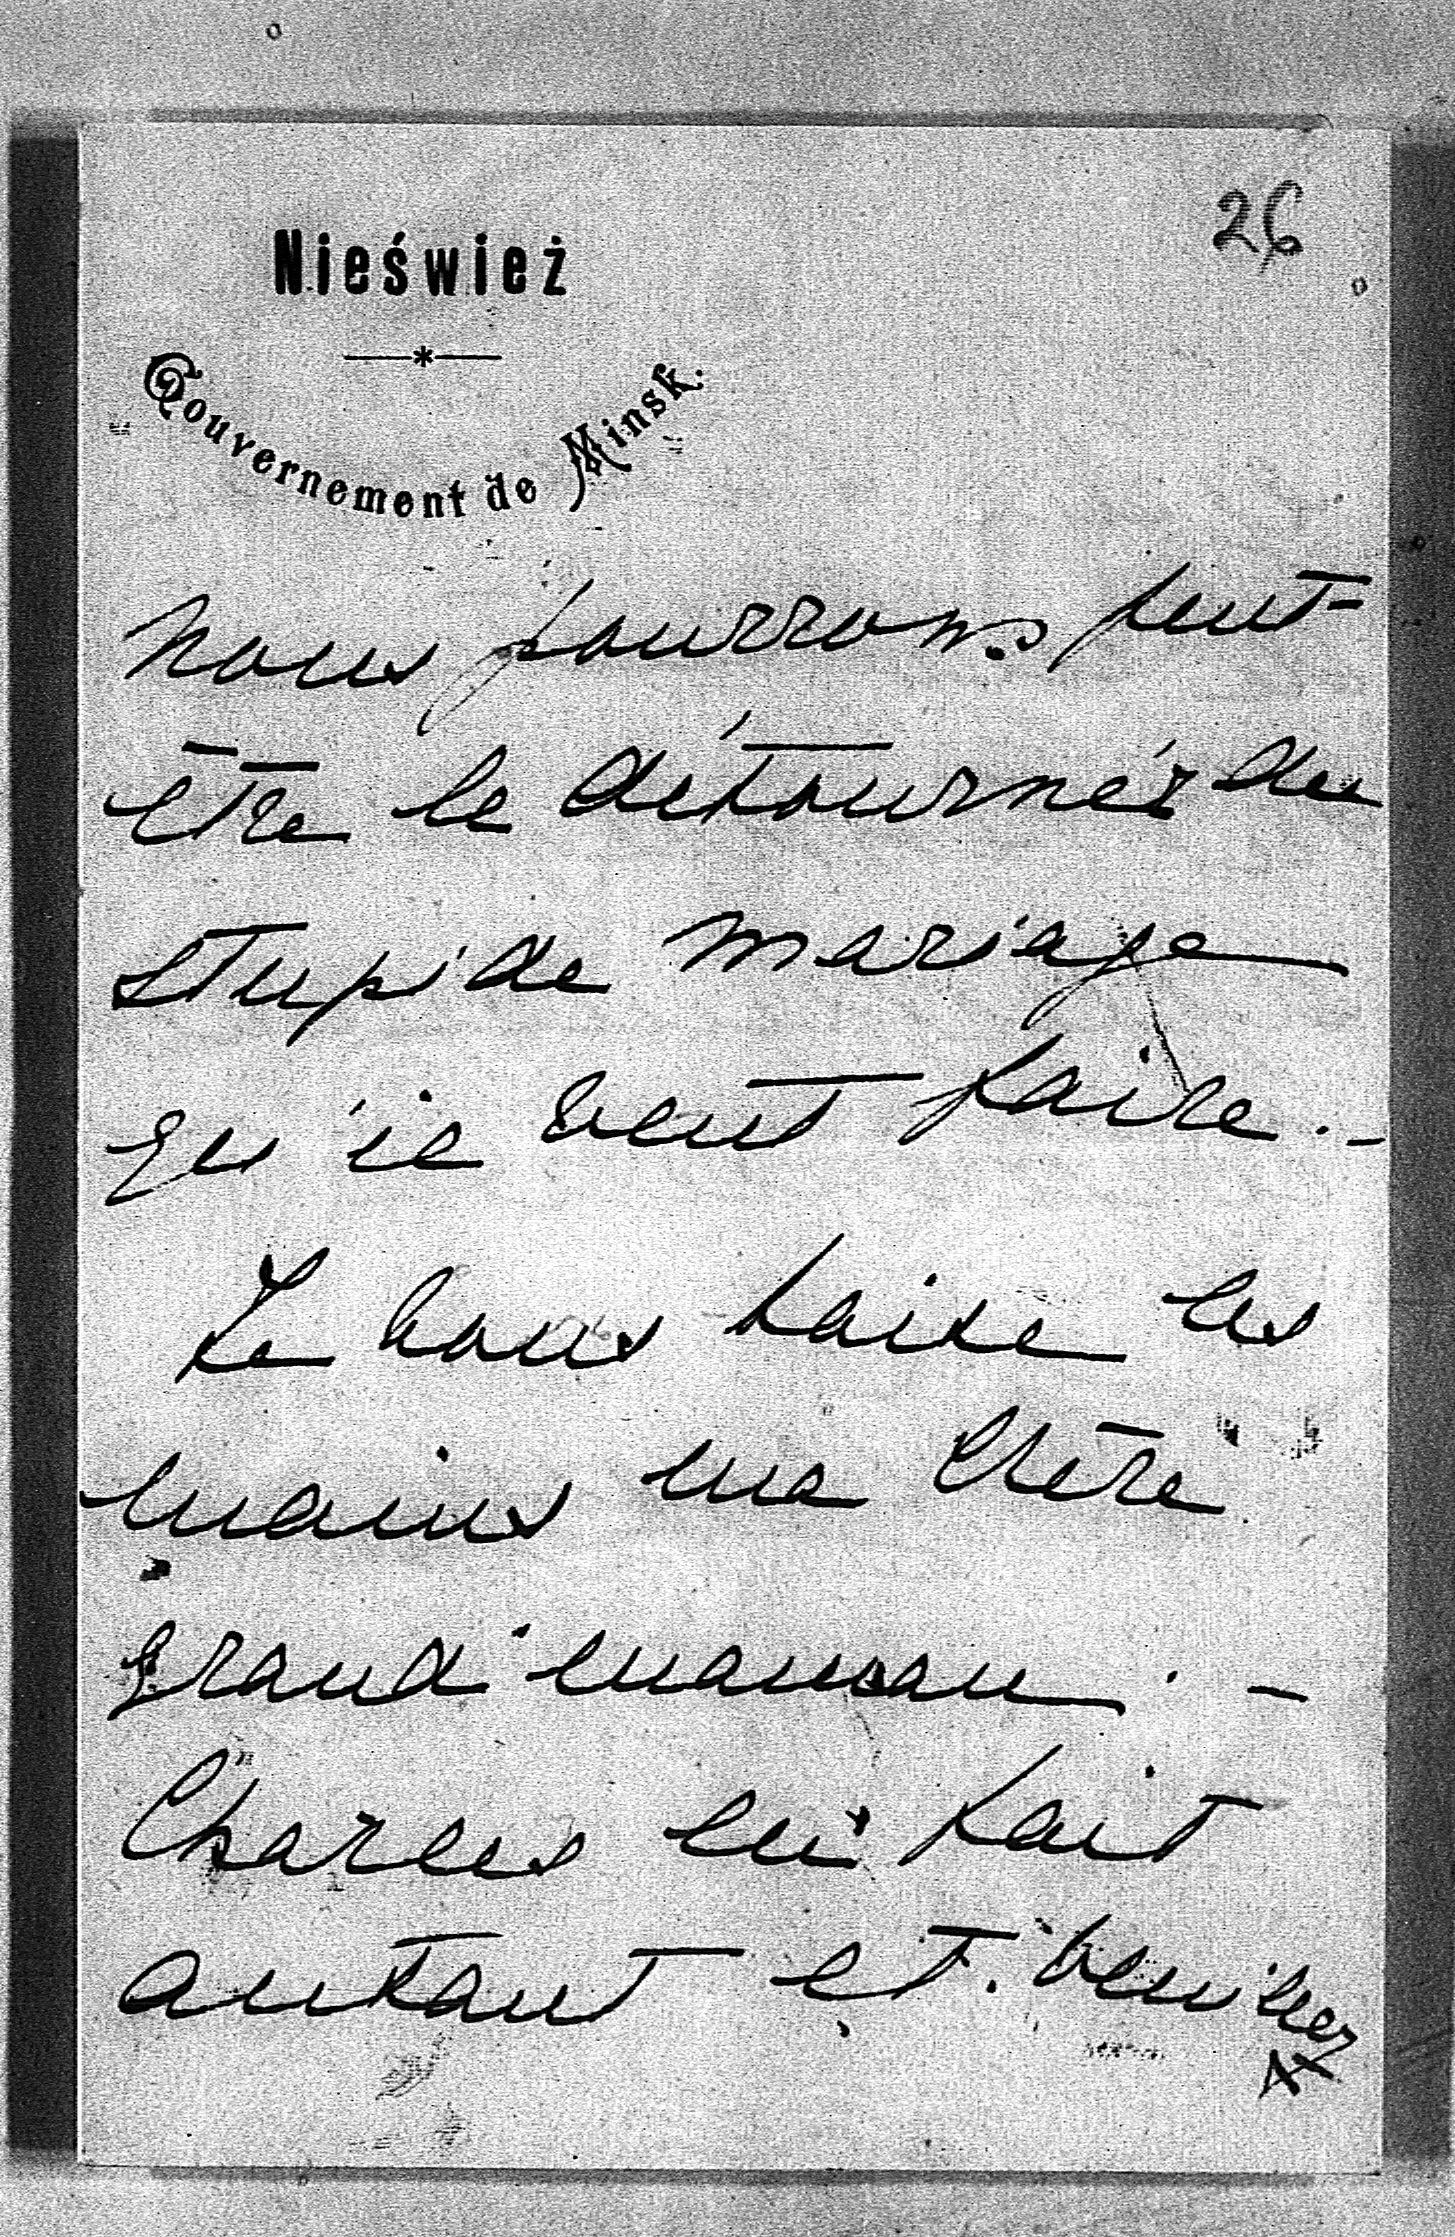 26
Nieśwież
Gouvernement de Minsk.
Nous pourrons peut-
être le détourner du
stupide mariage
qu'il veut faire. -
Je vous baise les
mains ma chère
grand'maman. -
Charles en fait
autant et veuillez